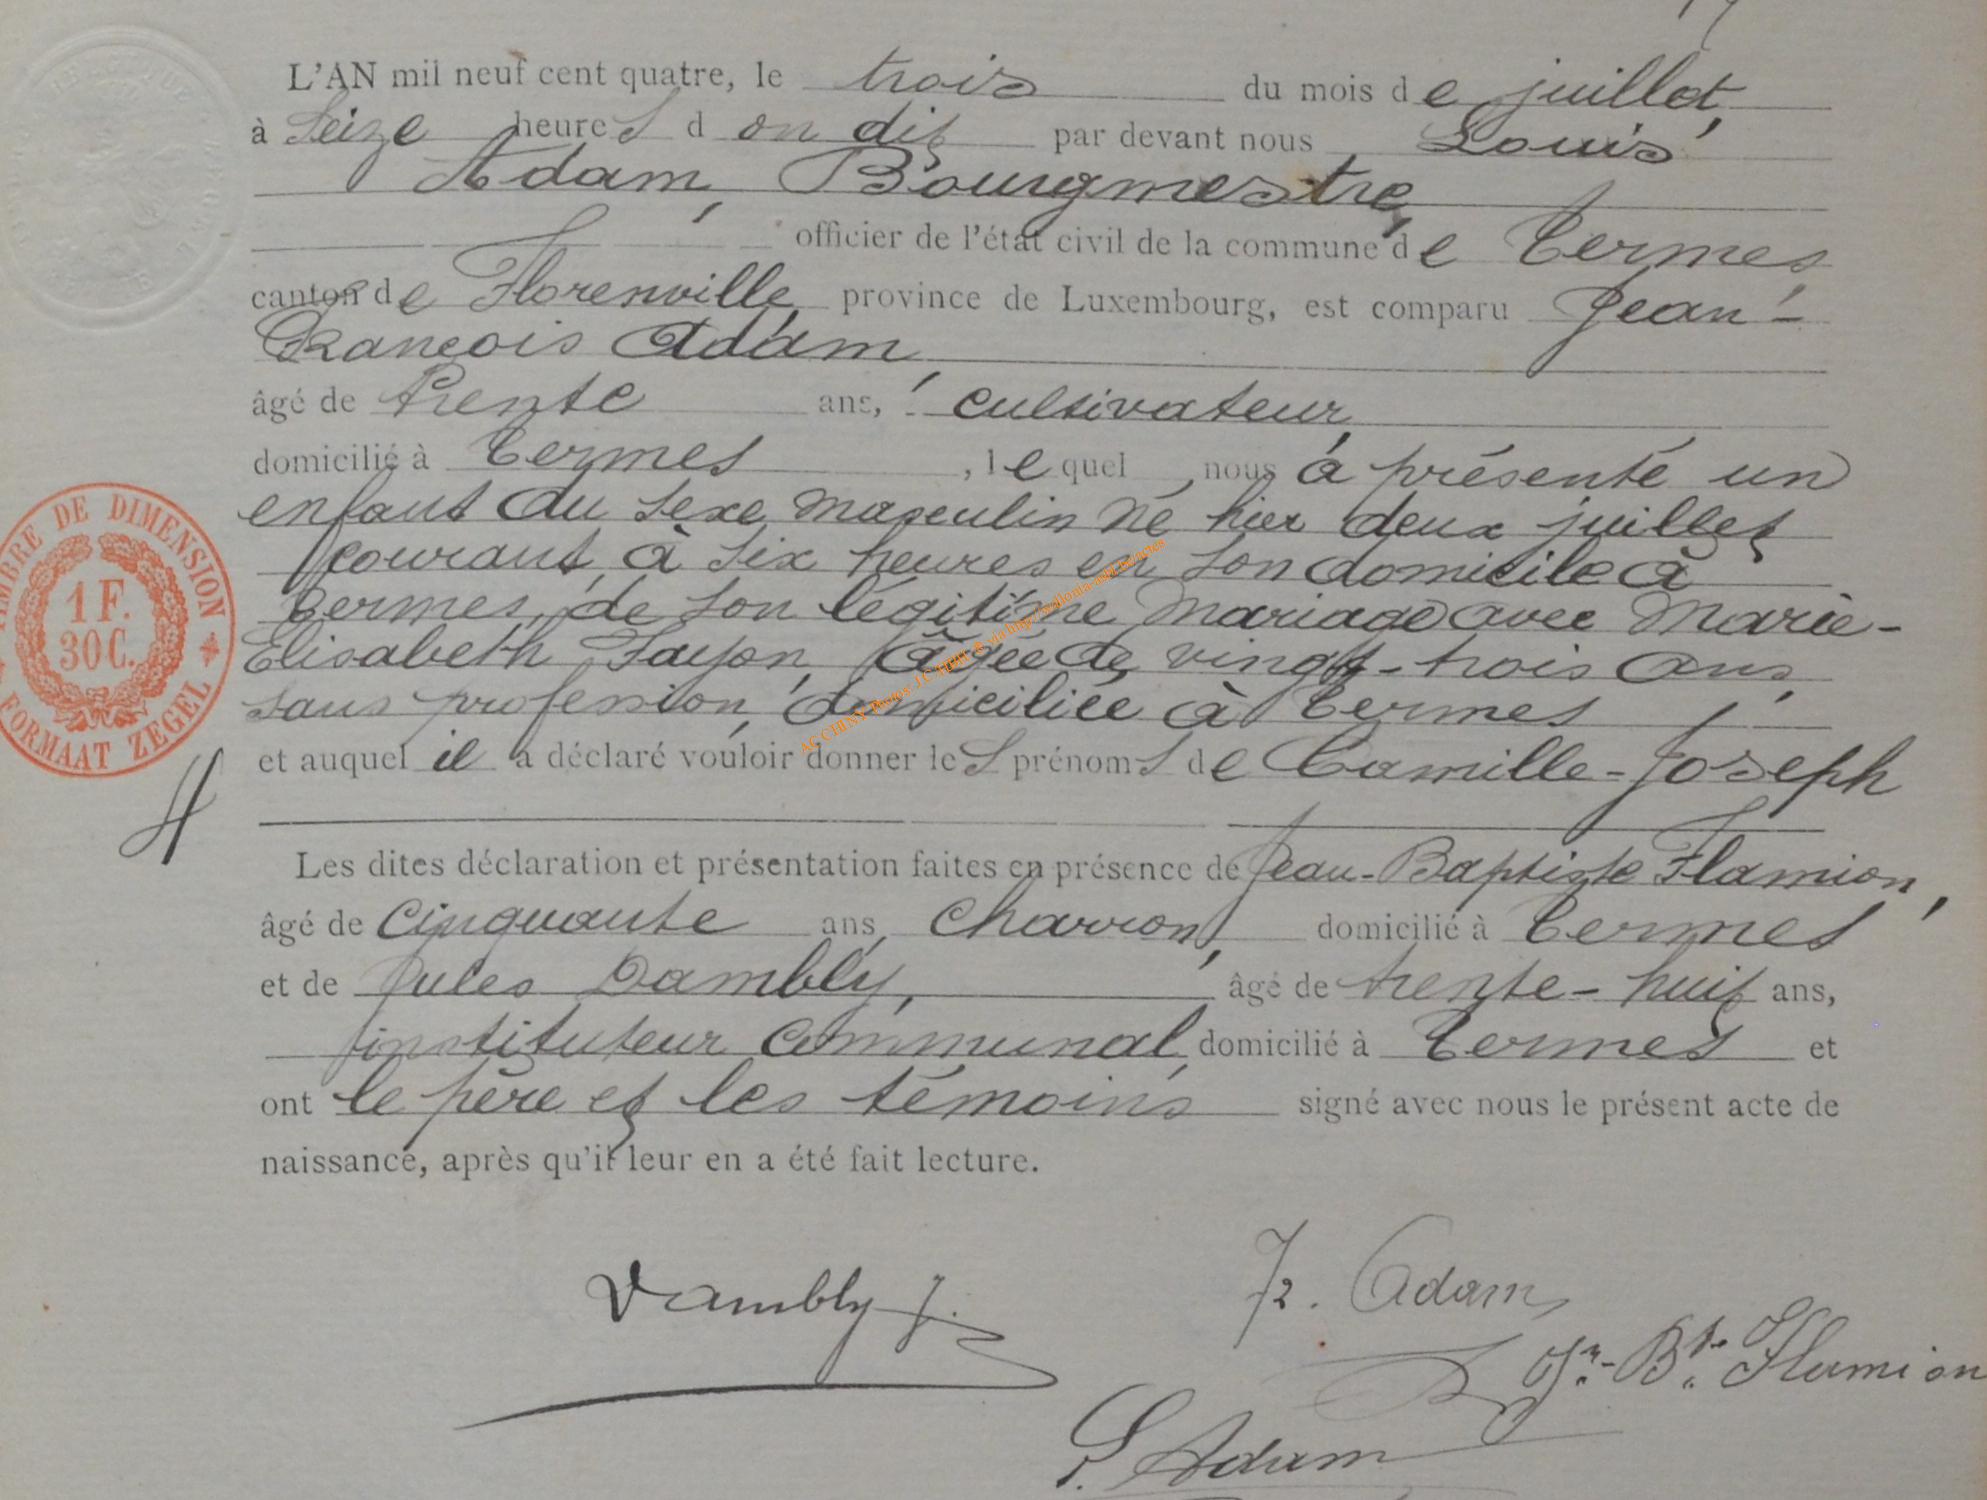 L'AN mil neuf cent quatre, le trois du mois de juillet,
à Seize heures d on dit par devant nous Louis
Adam, Bourgmestre,
officier de l'état civil de la commune de Termes,
canton de Florenville, province de Luxembourg, est comparu Jean-
François Adam,
âgé de trente ans, cultivateur,
domicilié à Termes, lequel nous a présenté un
enfant du sexe masculin né hier deux juillet
courant, à six heures en son domicile à
Termes, de son légitime mariage avec Marie-
Elisabeth Fayon, âgée de vingt-trois ans,
sans profession, domiciliée à Termes
et auquel il a déclaré vouloir donner les prénoms de Camille-Joseph
Les dites déclaration et présentation faites en présence de Jean-Baptiste Flamion,
âgé de cinquante ans, charron, domicilié à Termes
et de Jules Dambly, âgé de trente-huit ans,
instituteur communal, domicilié à Termes et
ont le père et les témoins signé avec nous le présent acte de
naissance, après qu'il leur en a été fait lecture.
Dambly J.
F. Adam
Jn.-Bte. Flamion
L. Adam
TIMBRE DE DIMENSION
1 F.
30 C.
FORMAAT ZEGEL